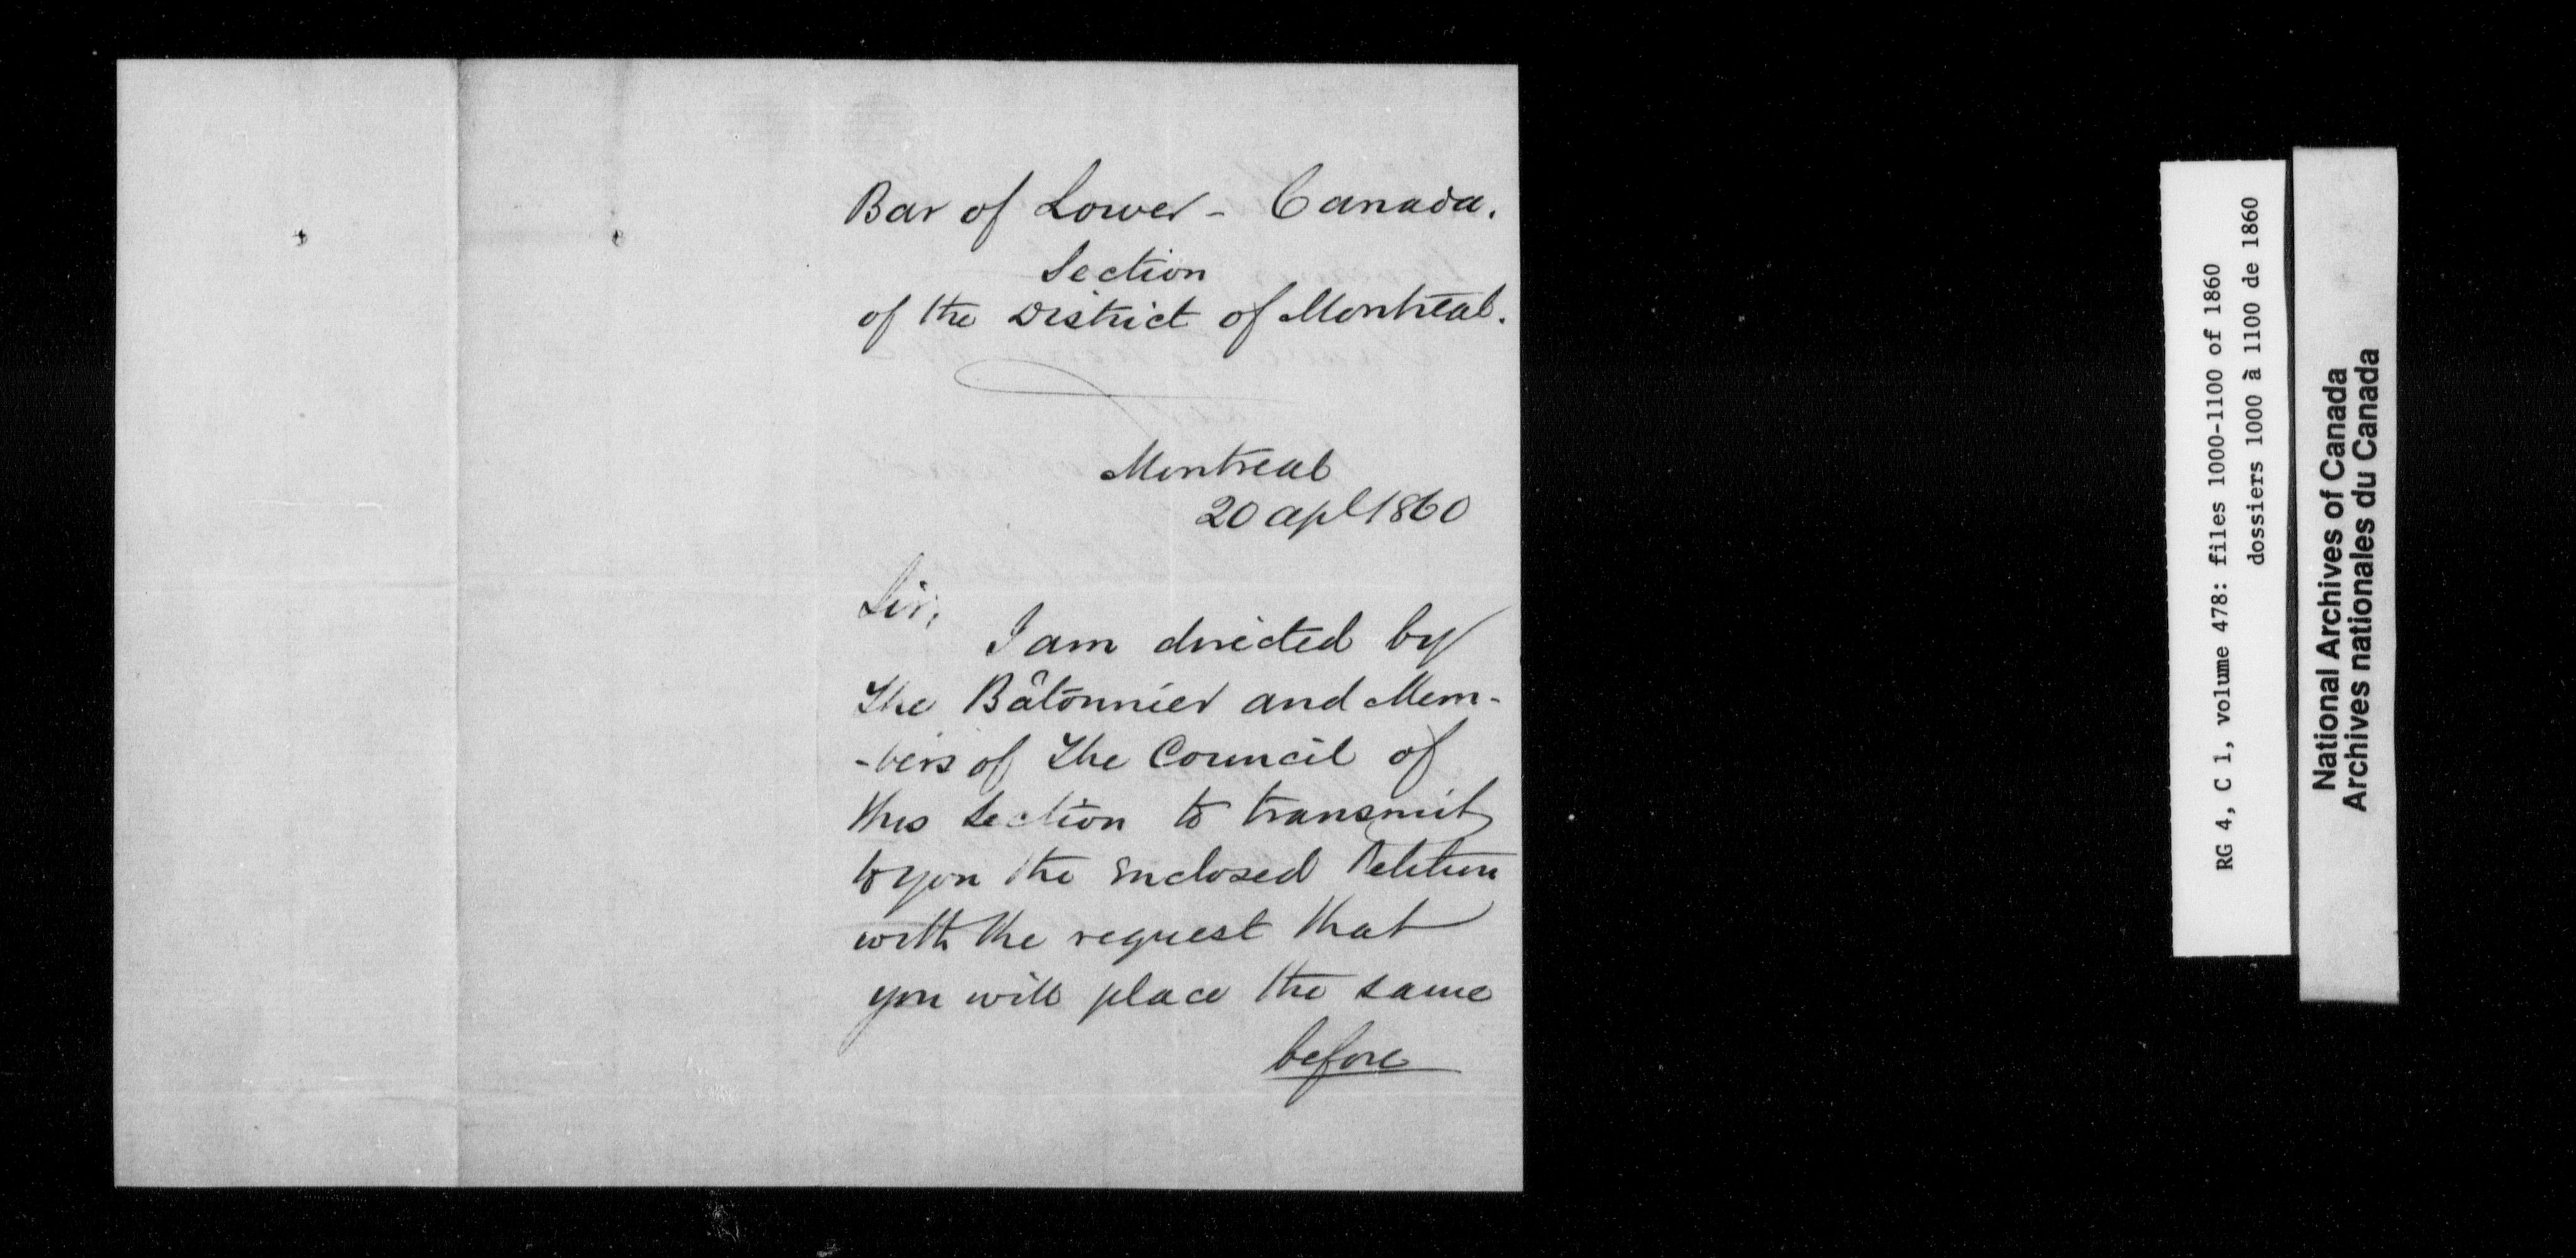 Bar of Lower - Canada.
Section
of the District of Montreal.
Montreal
20 apl 1860
Sir,
I am directed by
The Bâtonnier and Mem-
-bers of The Council of
this Section to transmit
to you the enclosed Petition
with the request that
you will place the same
before
RG 4, C 1, volume 478: files 1000-1100 of 1860
dossiers 1000 à 1100 de 1860
National Archives of Canada
Archives nationales du Canada